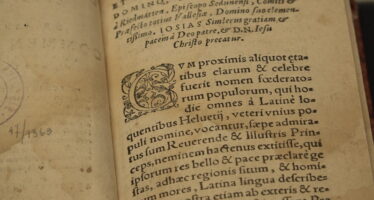 DOMINO,
à Riedmatten, Episcopo Sedunensi, Comiti &
Præfecto totius Vallesiæ, Domino suo clemen-
tissimo, IOSIAS Simlerus gratiam et
pacem à Deo patre, et D.N. Iesu
Christo precatur.
CVM proximis aliquot æta-
tibus clarum & celebre
fuerit nomen fœderato-
rum populorum, qui ho-
die omnes à Latinè lo-
quentibus Heluetij, veteri vnius po-
puli nomine, vocantur, sæpe admira-
tus sum Reuerende & Illustris Prin-
ceps, neminem hactenus extitisse, qui
ipsorum res bello & pace præclarè ge-
stas, adhæc regionis situm, & homi-
num mores, Latina lingua describe-
ret
etiam ab exteris & re-